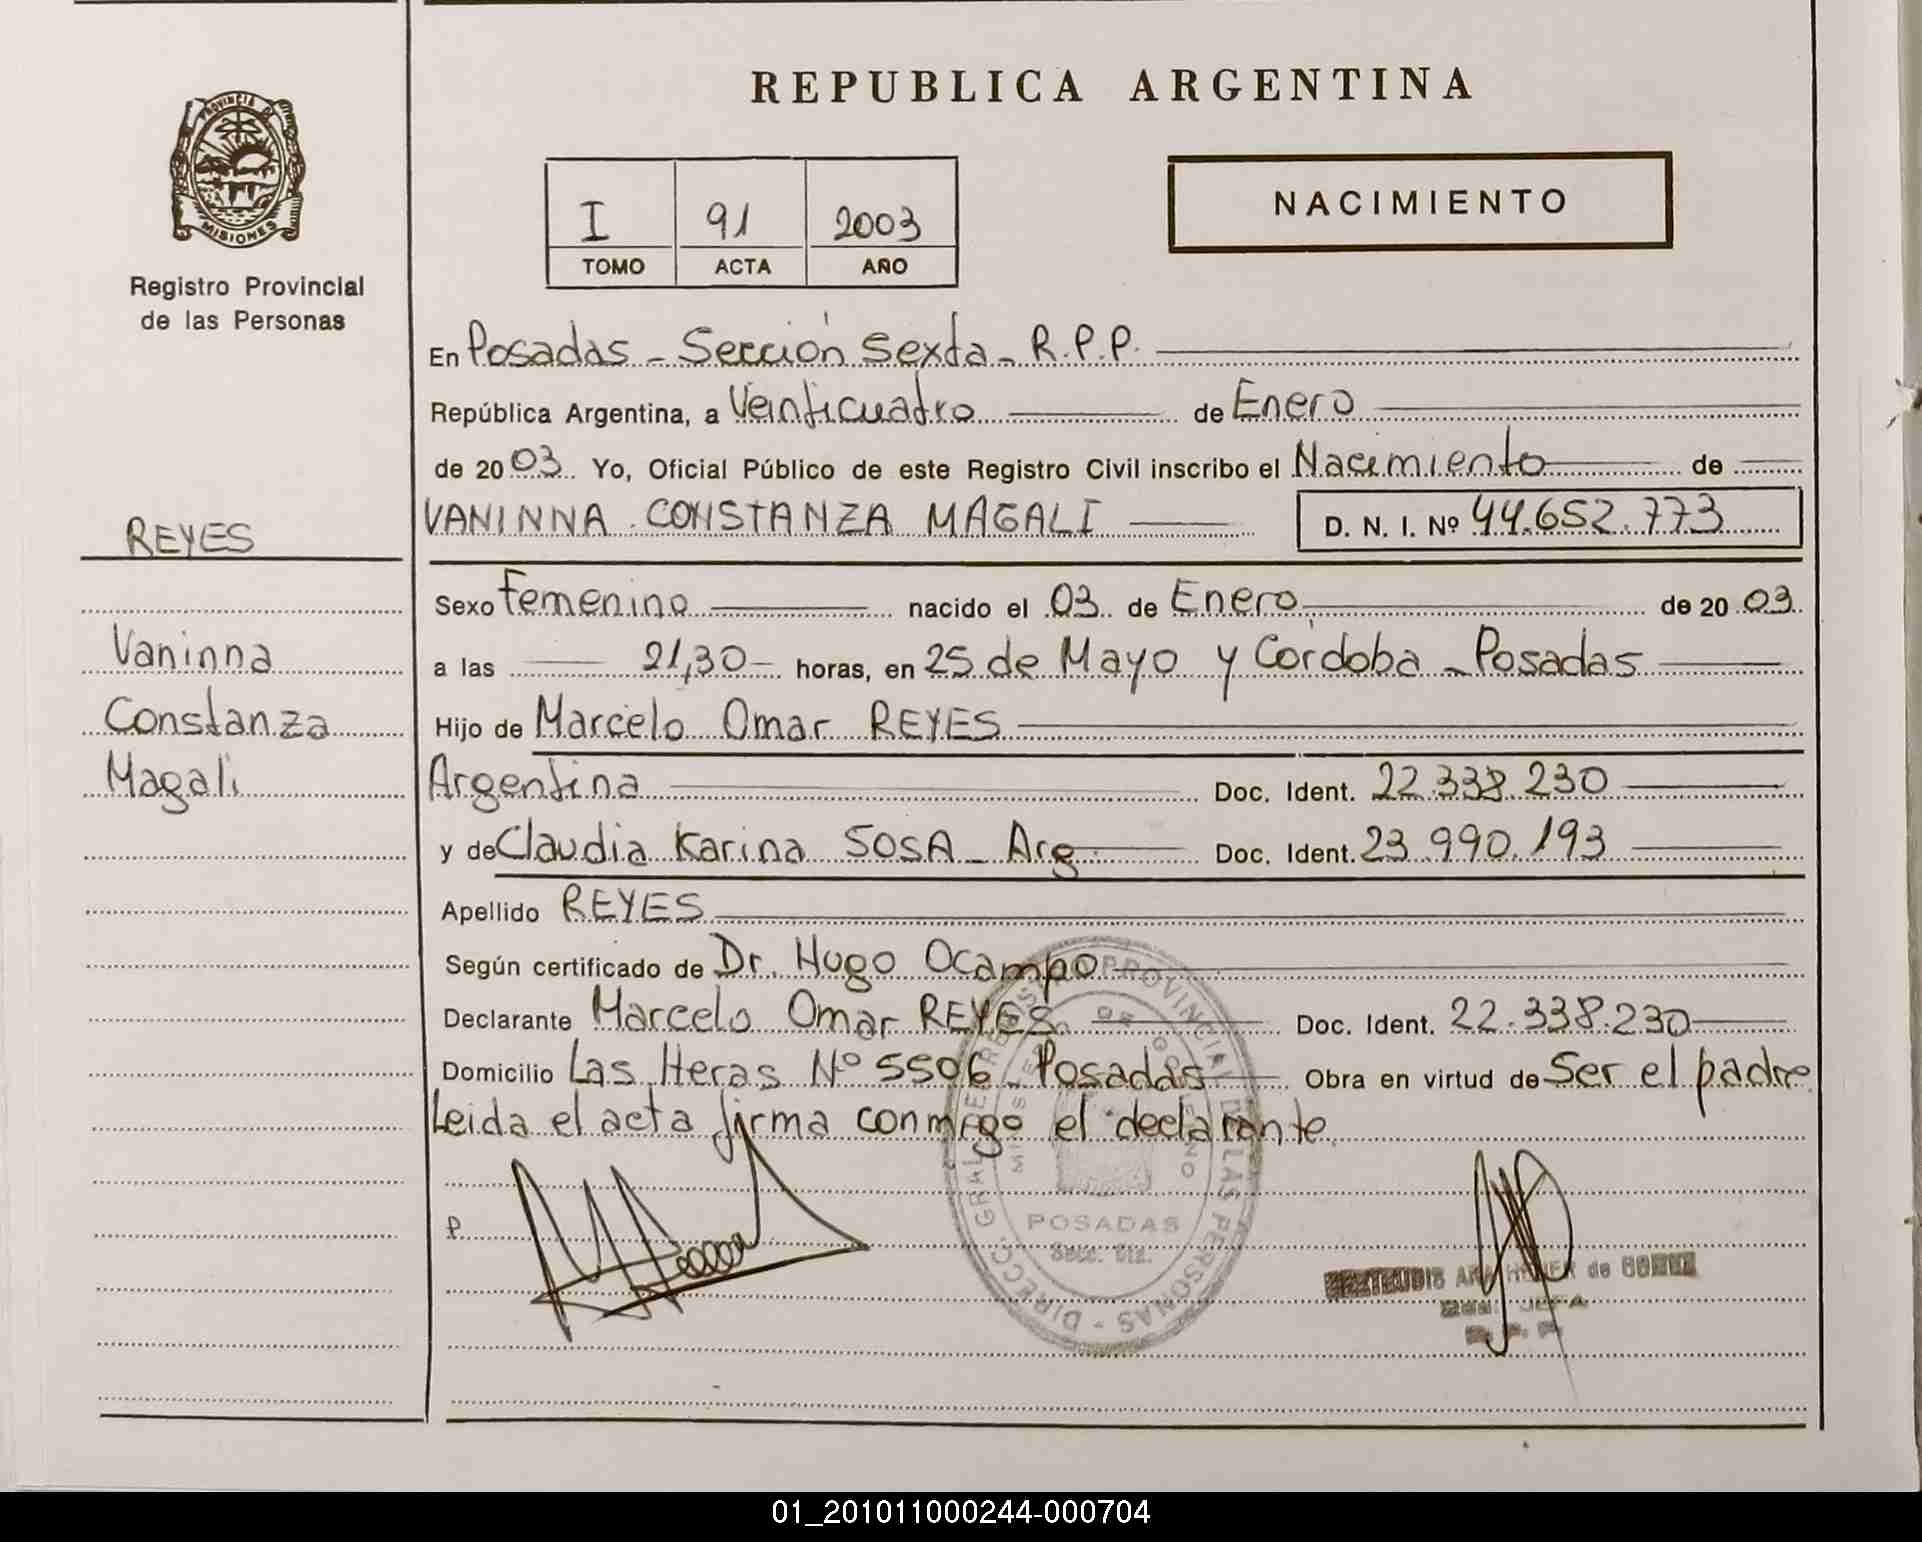 PROVINCIA DE
MISIONES
Registro Provincial
de las Personas
REYES
Vaninna
Constanza
Magali
REPUBLICA ARGENTINA
I 91 2003
TOMO ACTA AÑO
NACIMIENTO
En Posadas - Sección Sexta - R.P.P.
República Argentina, a Veinticuatro de Enero
de 2003. Yo, Oficial Público de este Registro Civil inscribo el Nacimiento de
VANINNA CONSTANZA MAGALI D. N. I. Nº 44.652.773
Sexo Femenino nacido el 03 de Enero de 2003
a las 21,30 horas, en 25 de Mayo y Córdoba - Posadas
Hijo de Marcelo Omar REYES
Argentina Doc. Ident. 22.338.230
y de Claudia Karina SOSA - Arg. Doc. Ident. 23.990.193
Apellido REYES
Según certificado de Dr. Hugo Ocampo
Declarante Marcelo Omar REYES Doc. Ident. 22.338.230
Domicilio Las Heras Nº 5506 - Posadas Obra en virtud de Ser el padre
Leida el acta firma conmigo el declarante.
P
DIRECC. GRAL. PROVINCIAL DE LAS PERSONAS
POSADAS
Secc. 6ta.
ANA de
JEFA
01_201011000244-000704